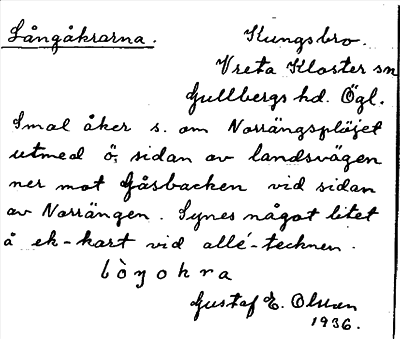 Långåkrarna.
Kungsbro.
Vreta Kloster sn
Gullbergs hd. Ögl.
Smal åker s. om Norrängsplöjet
utmed ö. sidan av landsvägen
ner mot Gåsbacken vid sidan
av Norrängen. Synes något litet
å ek-kart vid allé-tecknen.
Gustaf E. Olsson
1936.